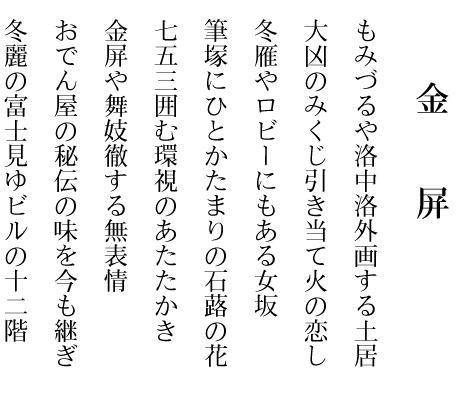 金屏
もみづるや洛中洛外画する土居
大凶のみくじ引き当て火の恋し
冬雁やロビーにもある女坂
筆塚にひとかたまりの石蕗の花
七五三囲む環視のあたたかき
金屏や舞妓徹する無表情
おでん屋の秘伝の味を今も継ぎ
冬麗の富士見ゆビルの十二階